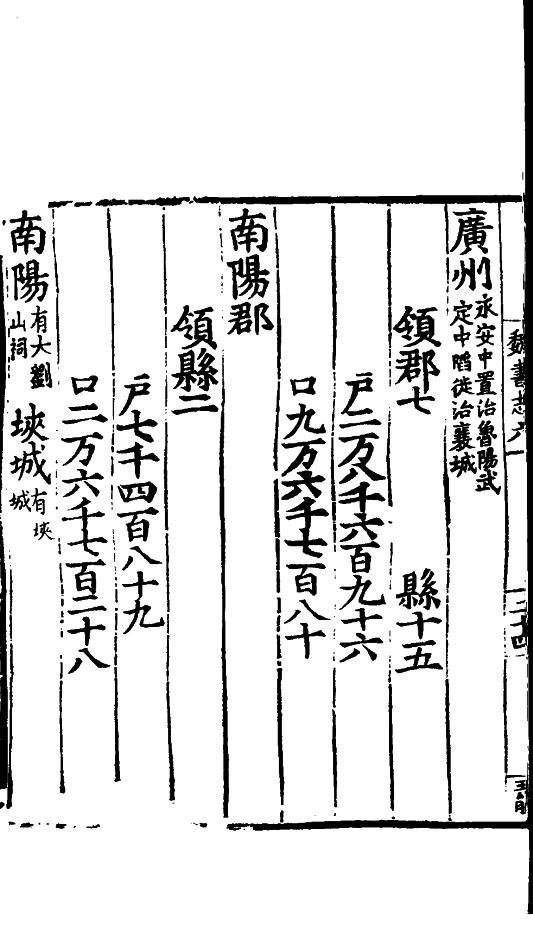 魏書志六
二十四
廣州永安中置治魯陽武定中陷徙治襄城
領郡七 縣十五
戸二万八千六百九十六
口九万六千七百八十
南陽郡
領縣二
戸七千四百八十九
口二万六千七百二十八
南陽有大劉山祠 𡍼城有㹟城